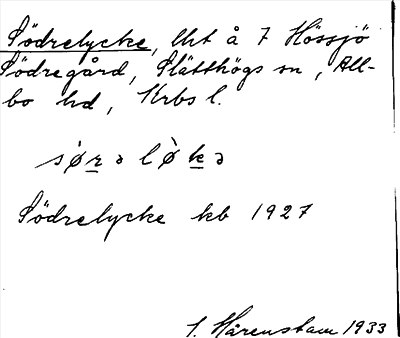 Södrelycke, lht å 7 Hössjö
Södregård, Slätthögs sn, All-
bo hd, Krbs l.
sø̀rə lø̀kə
Södrelycke kb 1927
S. Hårenstam 1933